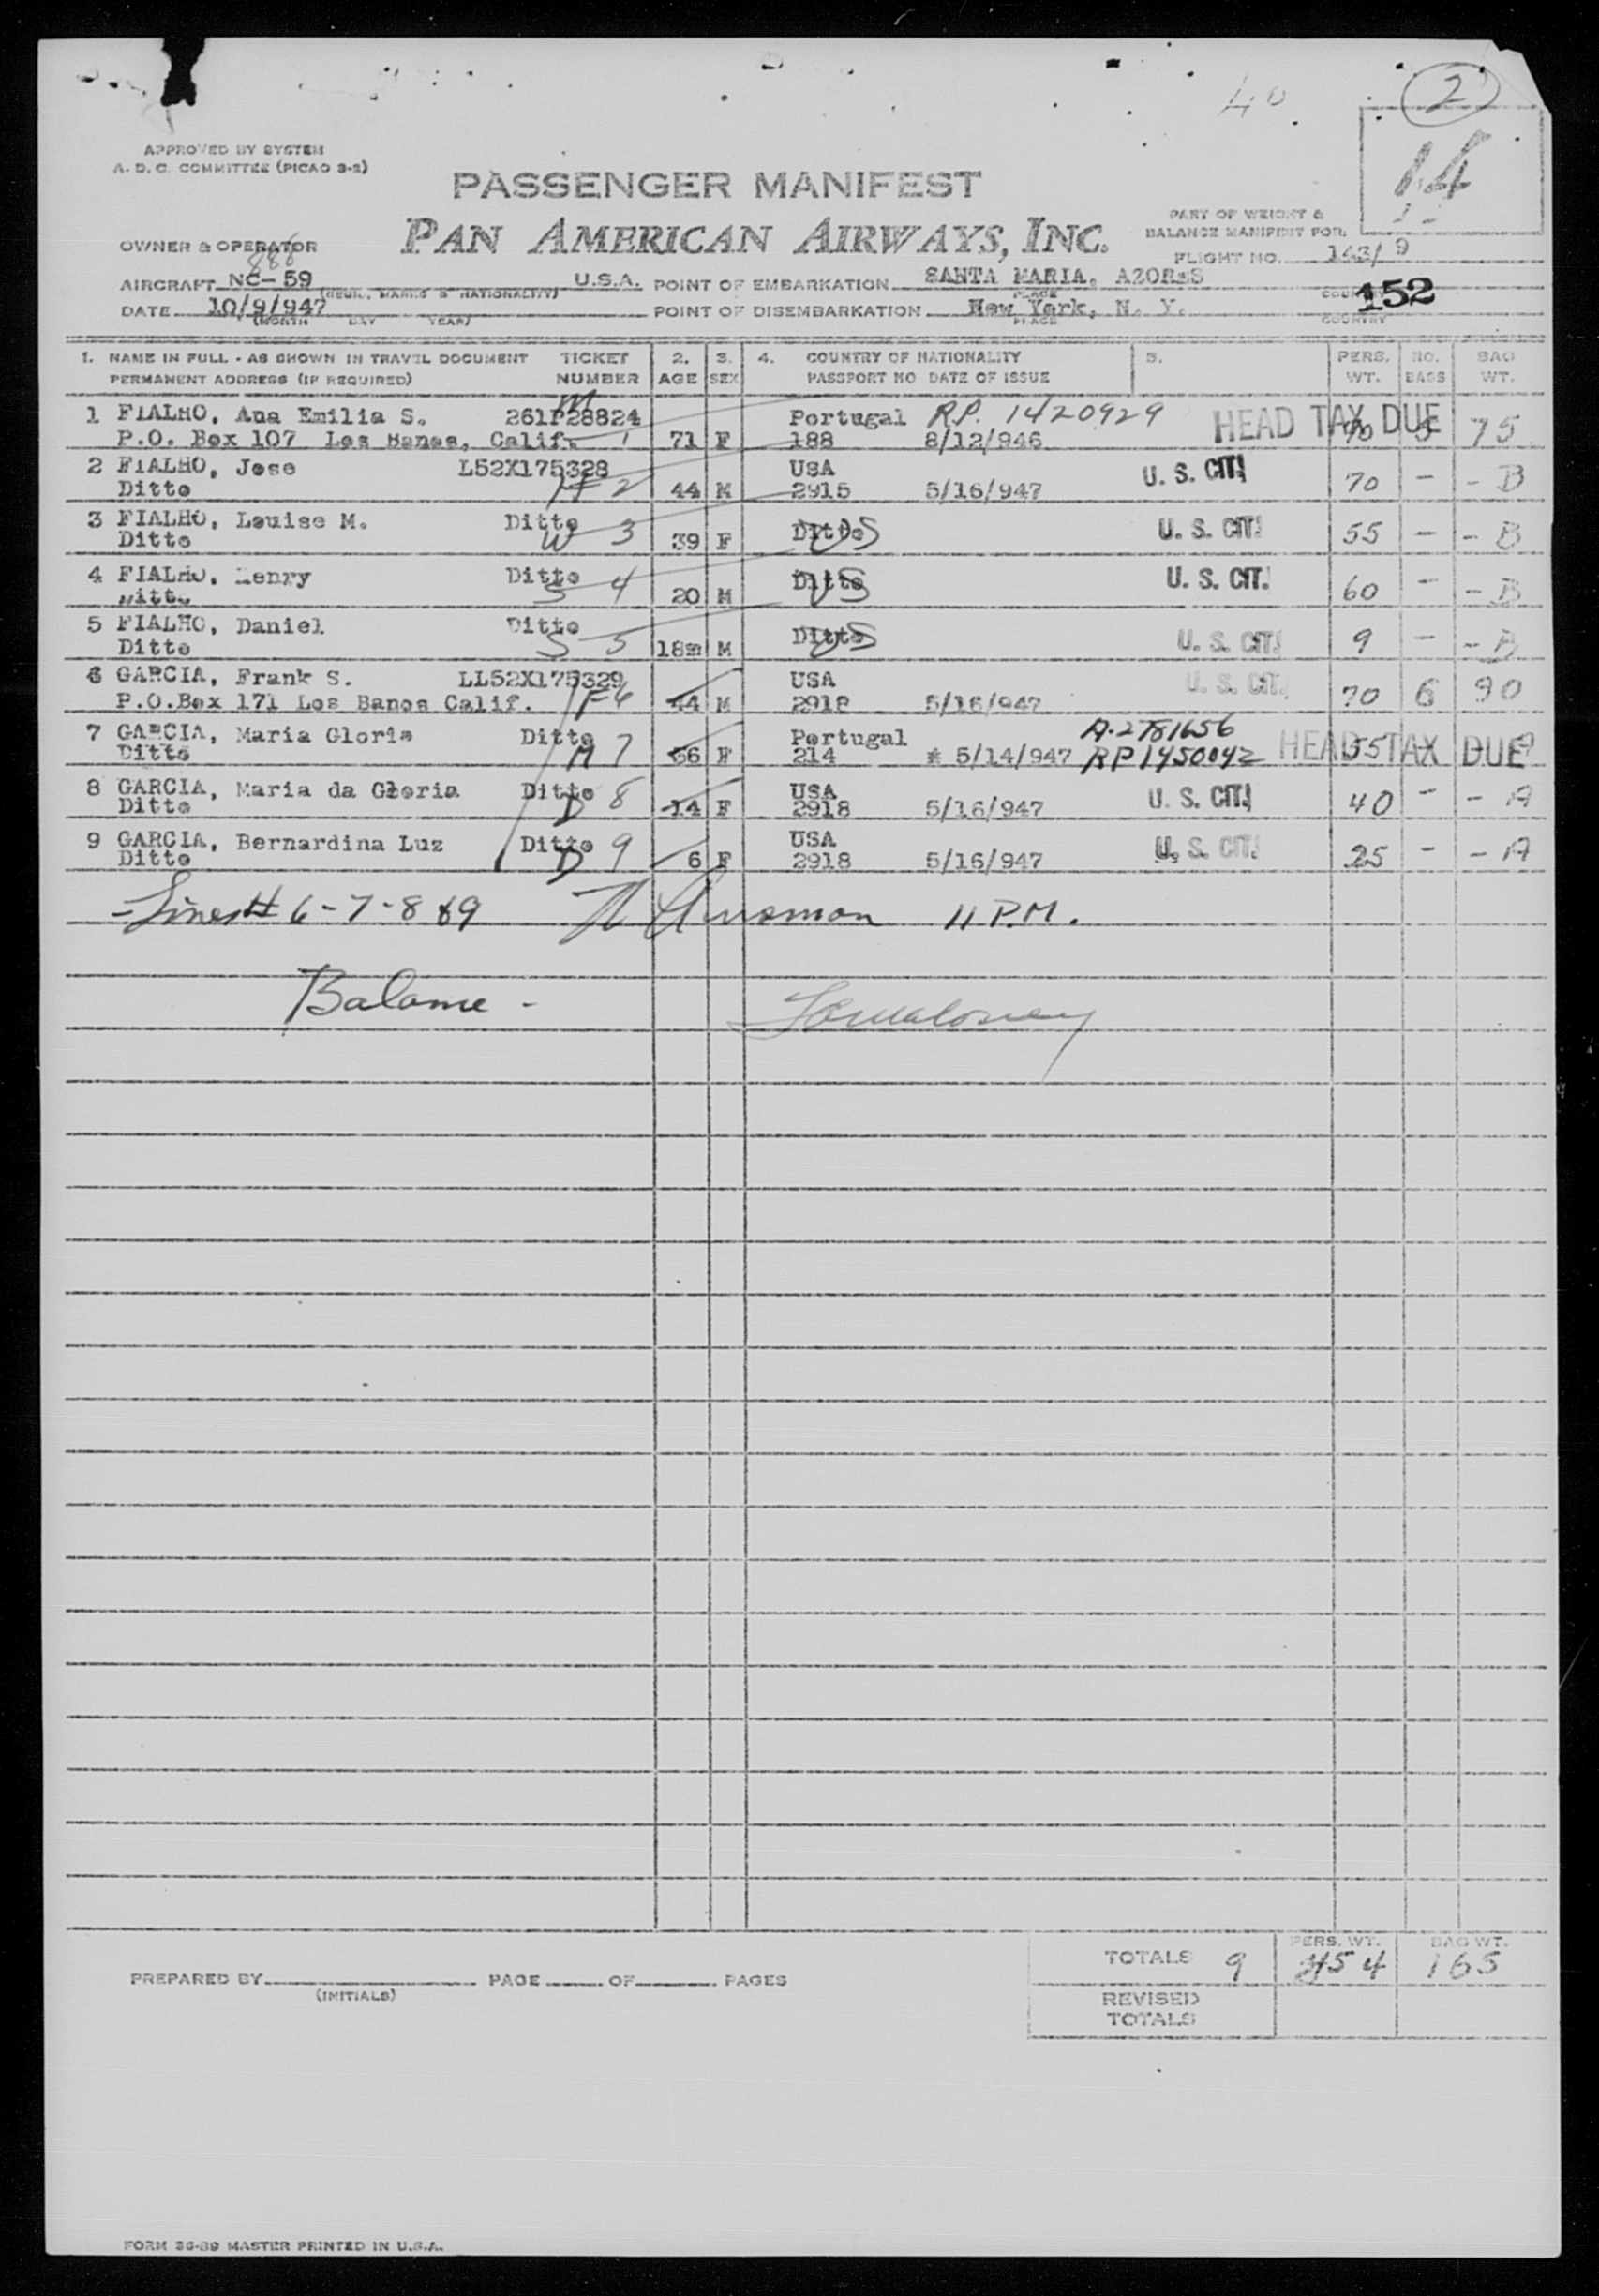 40
2
14
APPROVED BY SYSTEM
A. D. C. COMMITTEE (PICAO 3-2)
PASSENGER MANIFEST
PAN AMERICAN AIRWAYS, INC.
PART OF WEIGHT &
BALANCE MANIFEST FOR:
FLIGHT NO. 163/9
OWNER & OPERATOR
888
AIRCRAFT NC-59 U.S.A. POINT OF EMBARKATION SANTA MARIA, AZORES
(REGN., MARKS & NATIONALITY) PLACE COUNTRY
152
DATE 10/9/947 POINT OF DISEMBARKATION New York, N. Y.
(MONTH DAY YEAR) PLACE COUNTRY
1. NAME IN FULL - AS SHOWN IN TRAVEL DOCUMENT TICKET 2. 3. 4. COUNTRY OF NATIONALITY 5. PERS. NO. BAG
PERMANENT ADDRESS (IF REQUIRED) NUMBER AGE SEX PASSPORT NO DATE OF ISSUE WT. BAGS WT.
1 FIALHO, Ana Emilia S. M 261P28824 Portugal R.P. 1420929 HEAD TAX DUE
P.O. Box 107 Los Banos, Calif. 1 71 F 188 8/12/946 70 5 75
2 FIALHO, Jose L52X175328 USA U. S. CIT.
Ditto 2 44 M 2915 5/16/947 70 - - B
3 FIALHO, Louise M. Ditto Ditto US U. S. CIT.
Ditto W 3 39 F 55 - - B
4 FIALHO, Henry Ditto Ditto US U. S. CIT.
Ditto S 4 20 M 60 - - B
5 FIALHO, Daniel Ditto Ditto US U. S. CIT.
Ditto S 5 18m M 9 - - B
6 GARCIA, Frank S. LL52X175329 USA U. S. CIT.
P.O.Box 171 Los Banos Calif. F6 44 M 2918 5/16/947 70 6 90
7 GARCIA, Maria Gloria Ditto Portugal A-2781656 HEAD TAX DUE
Ditto M 7 F 214 * 5/14/947 RP 1450042 55 - A
8 GARCIA, Maria da Gloria Ditto USA U. S. CIT.
Ditto D 8 14 F 2918 5/16/947 40 - - A
9 GARCIA, Bernardina Luz Ditto USA U. S. CIT.
Ditto D 9 6 F 2918 5/16/947 25 - - A
- Lines # 6-7-8 &9 11 P.M.
Balance -
PREPARED BY PAGE OF PAGES
(INITIALS)
TOTALS 9 PERS. WT. 454 BAG WT. 165
REVISED
TOTALS
FORM 36-89 MASTER PRINTED IN U.S.A.